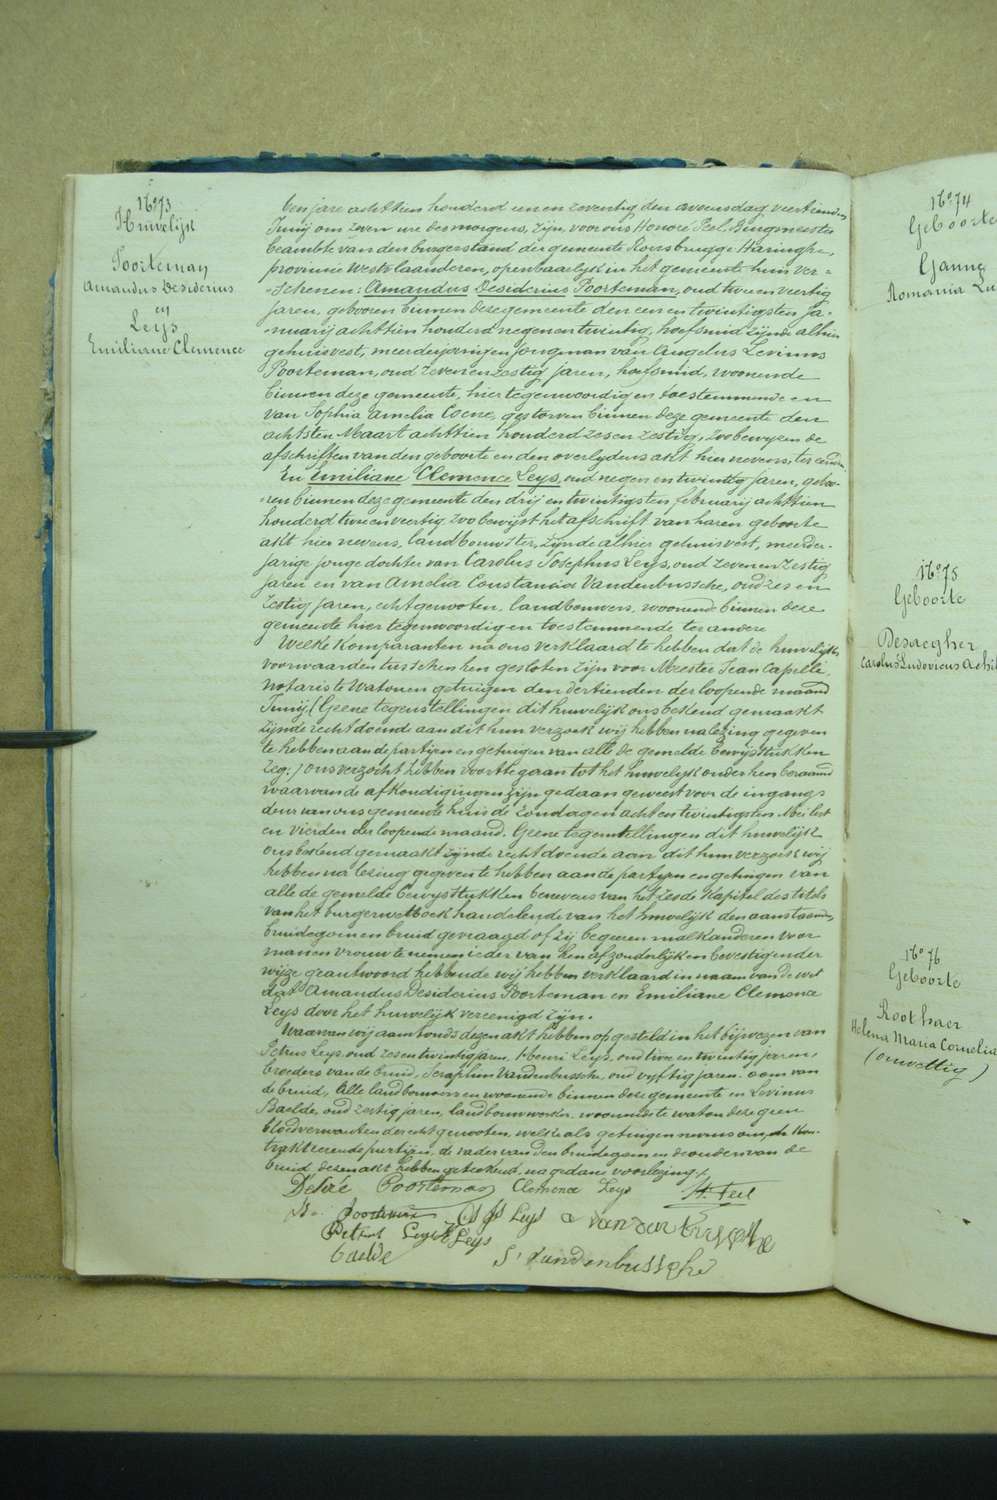 No 73
Huwelijk
Poorteman
Amandus Desiderius
en
Leys
Emiliane Clemence
Den jare achttien honderd een en zeventig den woensdag veertienden
Junij om zeven ure des morgens, zijn, voor ons Honoré Peel Burgemeester
beambte van den burgerstand der gemeente Rousbrugge Haringhe,
provincie Westvlaanderen, openbaarlijk in het gemeente huis ver=
=schenen: Amandus Desiderius Poorteman, oud twee en veertig
jaren, geboren binnen deze gemeente den een en twintigsten ja-
nuarij achttien honderd negen en twintig, hoefsmid zijnde alhier
gehuisvest, meerderjarigen jongman van Angelus Levinus
Poorteman, oud zeven en zestig jaren, hoefsmid, woonende
binnen deze gemeente, hier tegenwoordig en toestemmende en
van Sophia Amelia Coene, gestorven binnen deze gemeente den
achtsten Maart achttien honderd zes en zestig, zoo bewyzen de
afschriften van den geboorte en den overlydens akt hier nevens, ter eendre.
En Emiliane Clemence Leys, oud negen en twintig jaren, gebo-
ren binnen deze gemeente den drij en twintigsten februarij achttien
honderd twee en veertig, zoo bewijst het afschrift van haren geboorte
akt hier nevens, landbouwster, zijnde alhier gehuisvest, meerder-
jarige jonge dochter van Carolus Josephus Leys, oud zeven en zestig
jaren en van Amelia Constancia Vandenbussche, oud zes en
zestig jaren, echtgenooten, landbouwers, woonende binnen deze
gemeente hier tegenwoordig en toestemmende ter andere
Welke komparanten na ons verklaard te hebben dat de huwelijks
voorwaarden tusschen hen gesloten zijn voor Meester Jean Capelle,
notaris te Watou en getuigen den dertienden der loopende maand
Junij (Geene tegenstellingen dit huwelijk ons bekend gemaakt
zijnde recht doende aan dit hun verzoek wij hebben na lezing gegeven
te hebben aan de partijen en getuigen van alle de gemelde bewijsstukken
zeg:) ons verzocht hebben voort te gaan tot het huwelijk onder hen beraamd
waarvan de afkondigingen zijn gedaan geweest voor de ingang-
deur van ons gemeente huis de zondagen acht en twintigsten Mei lest
en vierden der loopende maand. Geene tegenstellingen dit huwelijk
ons bekend gemaakt zijnde recht doende aan dit hun verzoek wij
hebben na lezing gegeven te hebben aan de partijen en getuigen van
alle de gemelde bewijsstukken benevens van het zesde kapitel des titels
van het burgerwetboek handelende van het huwelijk den aanstaanden
bruidegom en bruid gevraagd of zij begeeren malkanderen voor
man en vrouw te nemen ieder van hen afzonderlijk en bevestigender
wijze geantwoord hebbende wij hebben verklaard in naam van de wet
dat Amandus Desiderius Poorteman en Emiliane Clemence
Leys door het huwelijk vereenigd zijn.
Waarvan wij aanstonds dezen akt hebben opgesteld in het bijwezen van
Petrus Leys, oud zes en twintig jaren, Henri Leys, oud twee en twintig jaren,
broeders van de bruid, Seraphin Vandenbussche, oud vyftig jaren, oom van
de bruid, alle landbouwers en woonende binnen deze gemeente en Levinus
Baelde, oud zestig jaren, landbouwwerker, woonende te Watou deze geen
bloedverwant en der echtgenooten, welke als getuigen nevens ons, de kon-
trakteerende partijen, de vader van den bruidegom en de ouders van de
bruid dezen akt hebben geteekend, na gedane voorlezing./.
Desiré Poorteman Clemence Leys H. Peel
Poorteman Cs Js Leys a vandenbussche
Petrus Leys H Leys
Baelde S. Vandenbussche
No 74
Geboorte
Ganne
Romania
No 75
Geboorte
Desaegher
Carolus Ludovicus Achil
No 76
Geboorte
Roothaer
Helena Maria Cornelia
(onwettig)